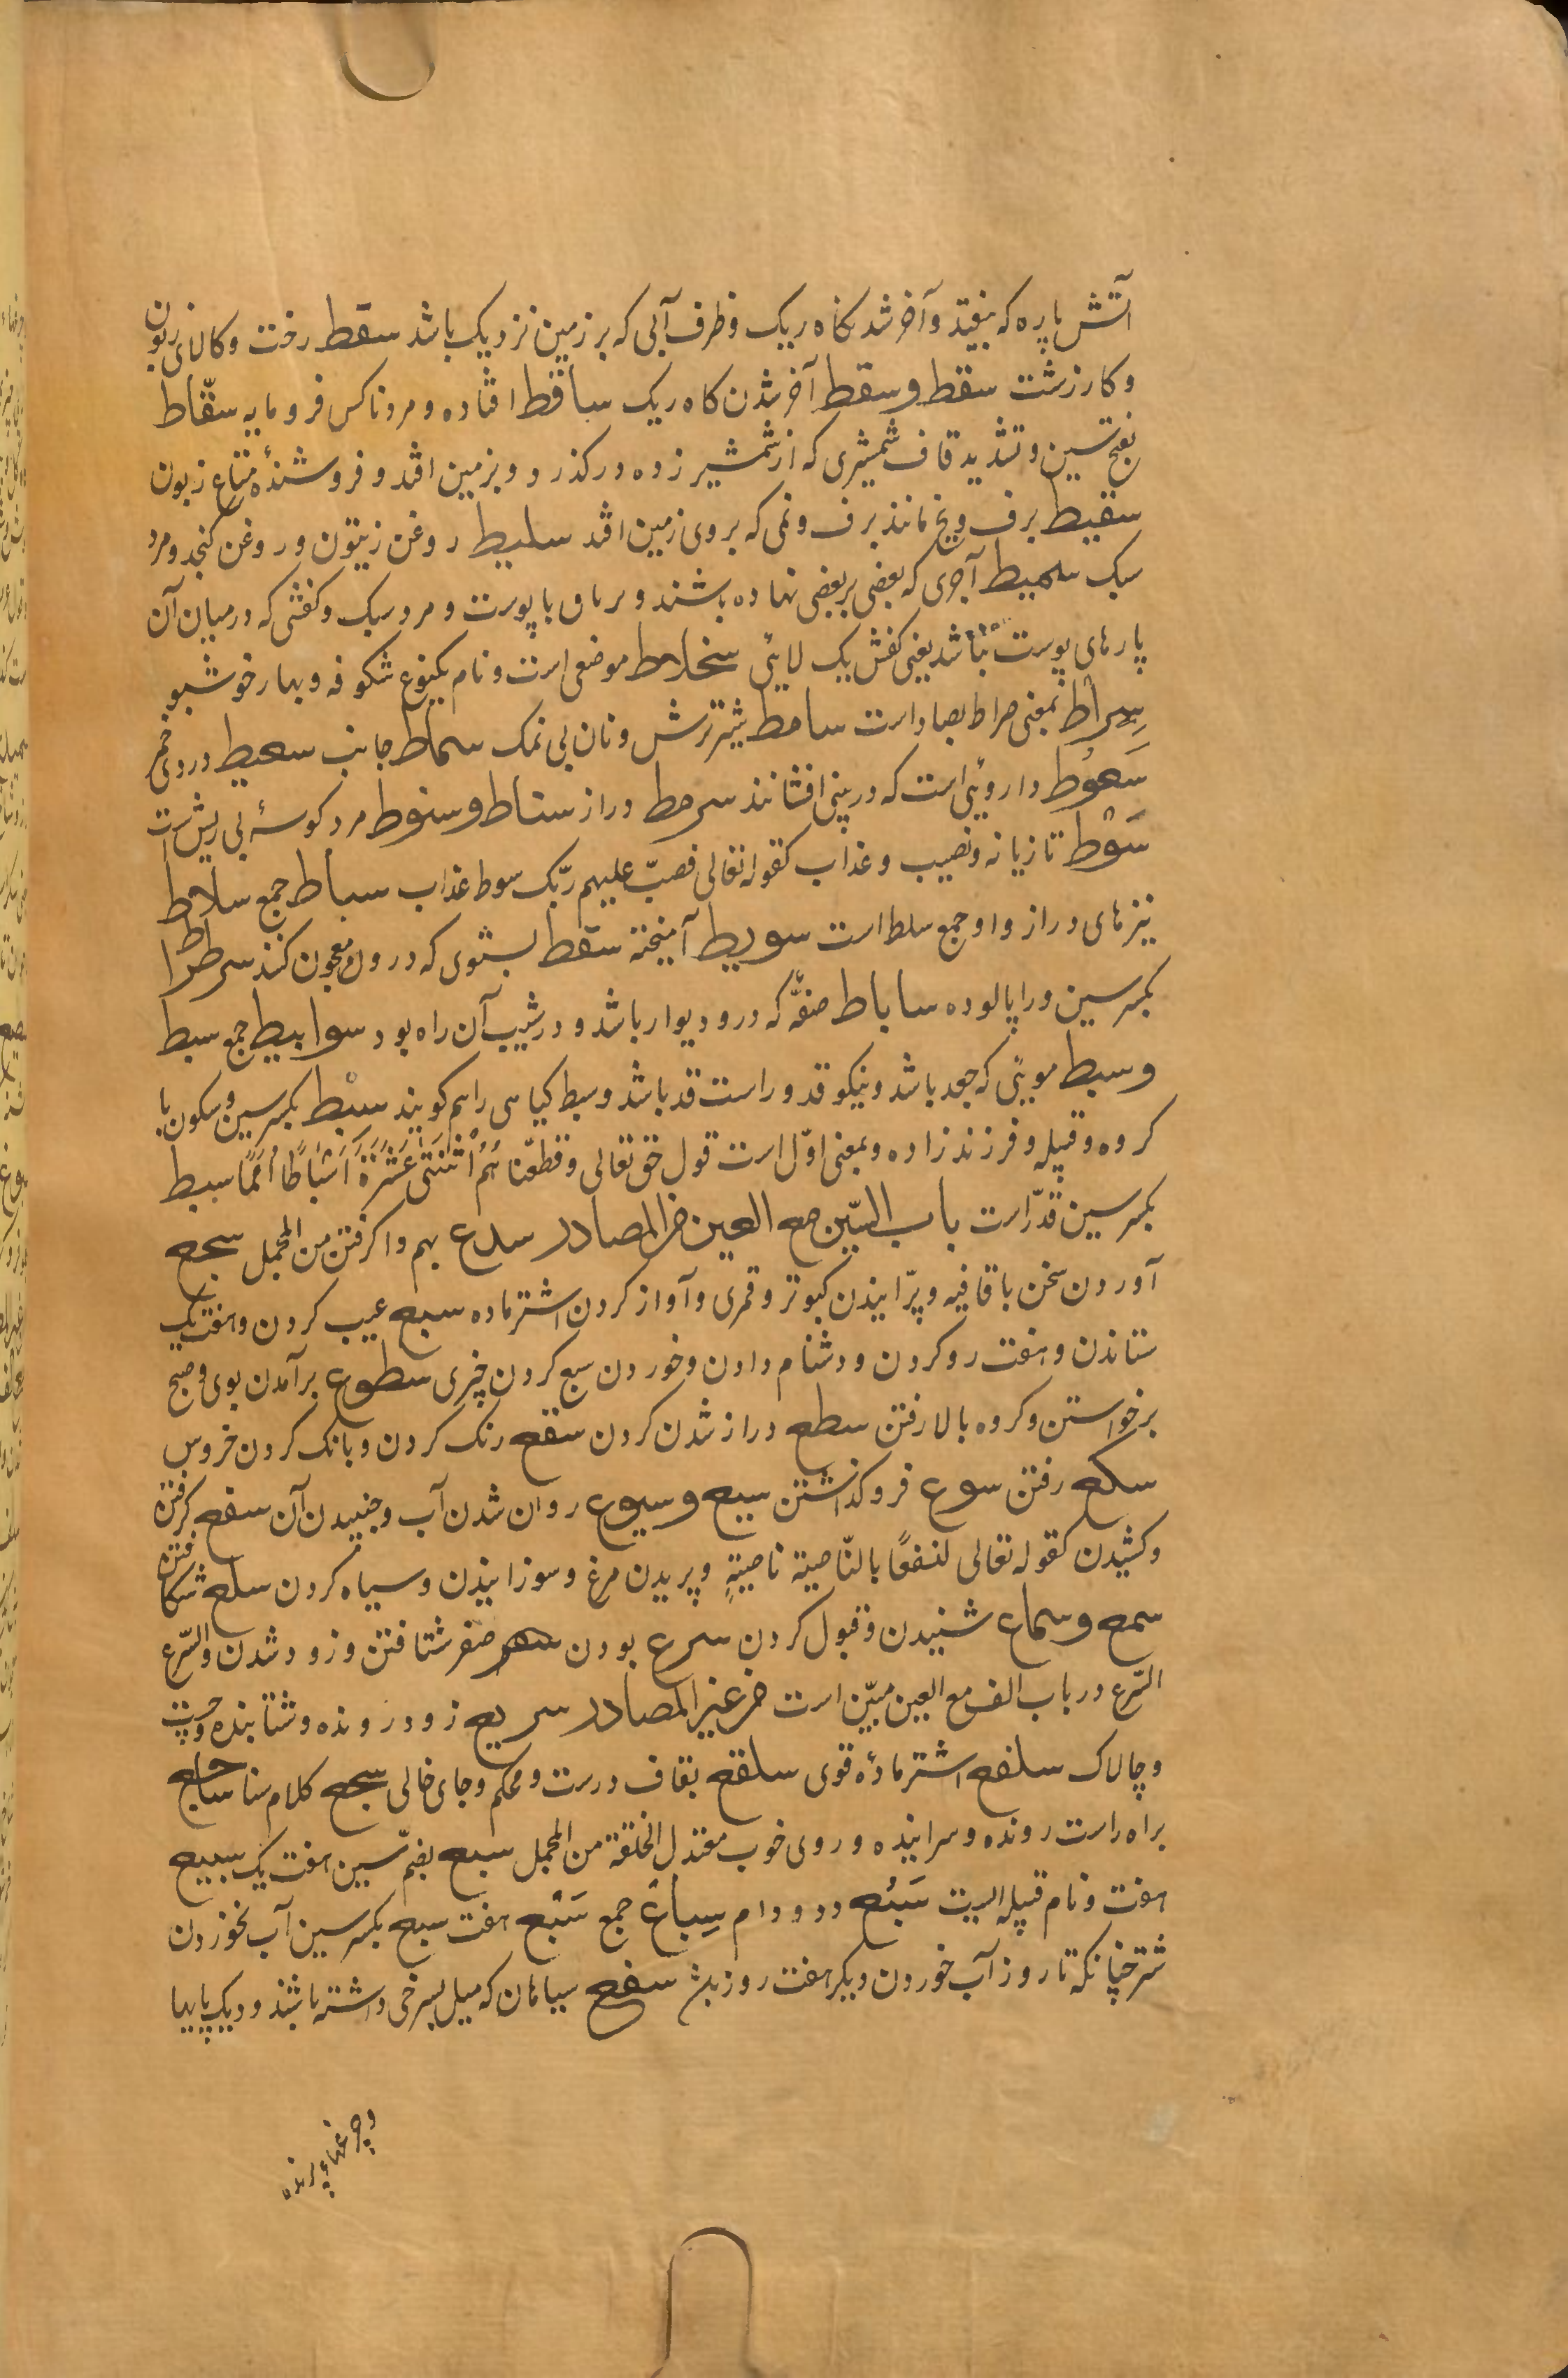 آتش پاره که بیفتد و آخر شدنگاه ریک و طرف آبی که بر زمین نزدیک باشد سقط رخت و کالای زبون
و کار زشت سقط و سقط آخر شدن کاه ریک ساقط افتاده و مرد ناکس فرومایه سقّاط
بفتح سین و تشدید قاف شمشیری که از شمشیر زده درکذرد و بزمین افتد و فروشندهٔ متاع زبون
سقیط برف و یخ مانند برف و نمی که بروی زمین افتد سلیط روغن زیتون و روغن کنجد و مرد
سبک سمیط آجری که بعضی بر بعضی نهاده باشند و بریان با پوست و مرد سبک و کفشی که در میان آن
پارهای پوست نباشد یعنی کفش یک لائی سخلاط موضعی است و نام یکنوع شکوفه و بهار خوشبو
سِراط بمعنی صراط بصاد است سامط شیر ترش و نان بی نمک سماط جانب سعیط دردی خمر
سَعوُط داروئی است که در بینی افشانند سرمط دراز سناط و سنوط مرد کوسهٔ بی ریش است
سَوْط تازیانه و نصیب و عذاب کقوله تعالی فصبّ علیهم ربّک سوط عذاب سباط جمع سلاط
نیزهای دراز و او جمع سلط است سویط آمیخته سقط بستوی که درو معجون کنند سرطراط
بکسر سین و را پالوده ساباط صفهٔ که در و دیوار باشد و در شیب آن راه بود سوابیط جمع سبط
و سبط موئی که جعد باشد و نیکو قد و راست قد باشد و سبط کیاهی را هم کویند سبْط بکسر سین و سکون با
کروه و قبیله و فرزندزاده و بمعنی اوّل است قول حق تعالی و قطّعناهُمُ اثْنَتَی عَشْرَةَ اَسْبَاطًا اُمَمًا سبط
بکسر سین قدّ است باب السّین مع العین من المصادر سدع بهم واکرفتن من المجمل سجع
آوردن سخن با قافیه و پرّانیدن کبوتر و قمری و آواز کردن اشتر ماده سبع عیب کردن و هفت یک
ستاندن و هفت رو کردن و دشنام دادن و خوردن سبع کردن چیزی سطوع برآمدن بوی و صبح
برخواستن و کروه بالا رفتن سطع دراز شدن کردن سقع رنک کردن و بانک کردن خروس
سکع رفتن سوع فروکذاشتن سیع و سیوع روان شدن آب و جنبیدن آن سفع کرفتن
و کشیدن کقوله تعالی لنسفعًا بالنّاصیة ناصیةٍ و پریدن مرغ و سوزانیدن و سیاه کردن سلع شکافتن
سمع و سماع شنیدن و قبول کردن سرع بودن صفر شتافتن و زود شدن والسّرع
السّرع در باب الف مع العین مبیّن است من غیر المصادر سریع زود رونده و شتابنده و چست
و چالاک سلفع اشتر مادهٔ قوی سلقع بقاف درست و محکم و جای خالی سجع کلام ساجع
براه راست رونده و سراینده و روی خوب معتدل الخلقة من المجمل سبع بضمّ سین هفت یک سبیع
هفت و نام قبیله ایست سَبُع دد و دام سِباع جمع سَبْع هفت سبع بکسر سین آب نخوردن
شتر چنانکه تا روز آب خوردن دیکر هفت روز باشد سفع سیاهان که میل بسرخی داشته باشند و دیک پایها
و چرغهاء پرنده